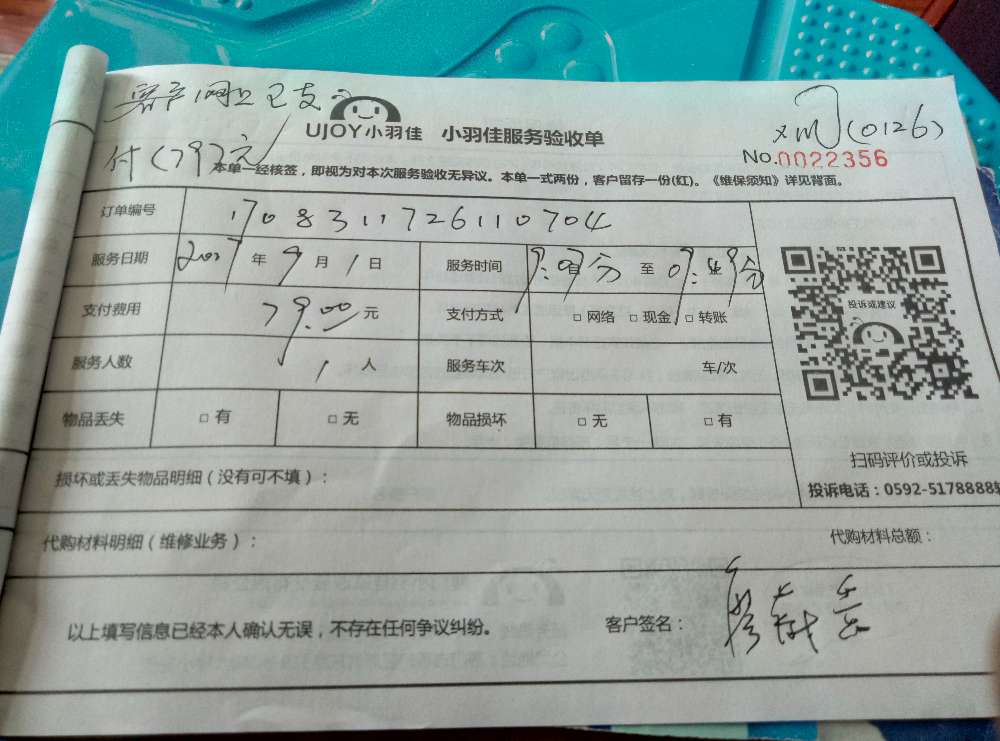 客户网上已支
付(79元)
UJOY小羽佳 小羽佳服务验收单
XM(0126)
No.0022356
本单一经核签，即视为对本次服务验收无异议。本单一式两份，客户留存一份(红)。《维保须知》详见背面。
订单编号 1708311726110704
服务日期 2017年9月1日 服务时间 分 至 分
支付费用 79.00元 支付方式 □网络 □现金 □转账
服务人数 1人 服务车次 车/次
物品丢失 □有 □无 物品损坏 □无 □有
投诉或建议
扫码评价或投诉
投诉电话：0592-5178888转
损坏或丢失物品明细（没有可不填）：
代购材料明细（维修业务）： 代购材料总额：
以上填写信息已经本人确认无误，不存在任何争议纠纷。 客户签名：